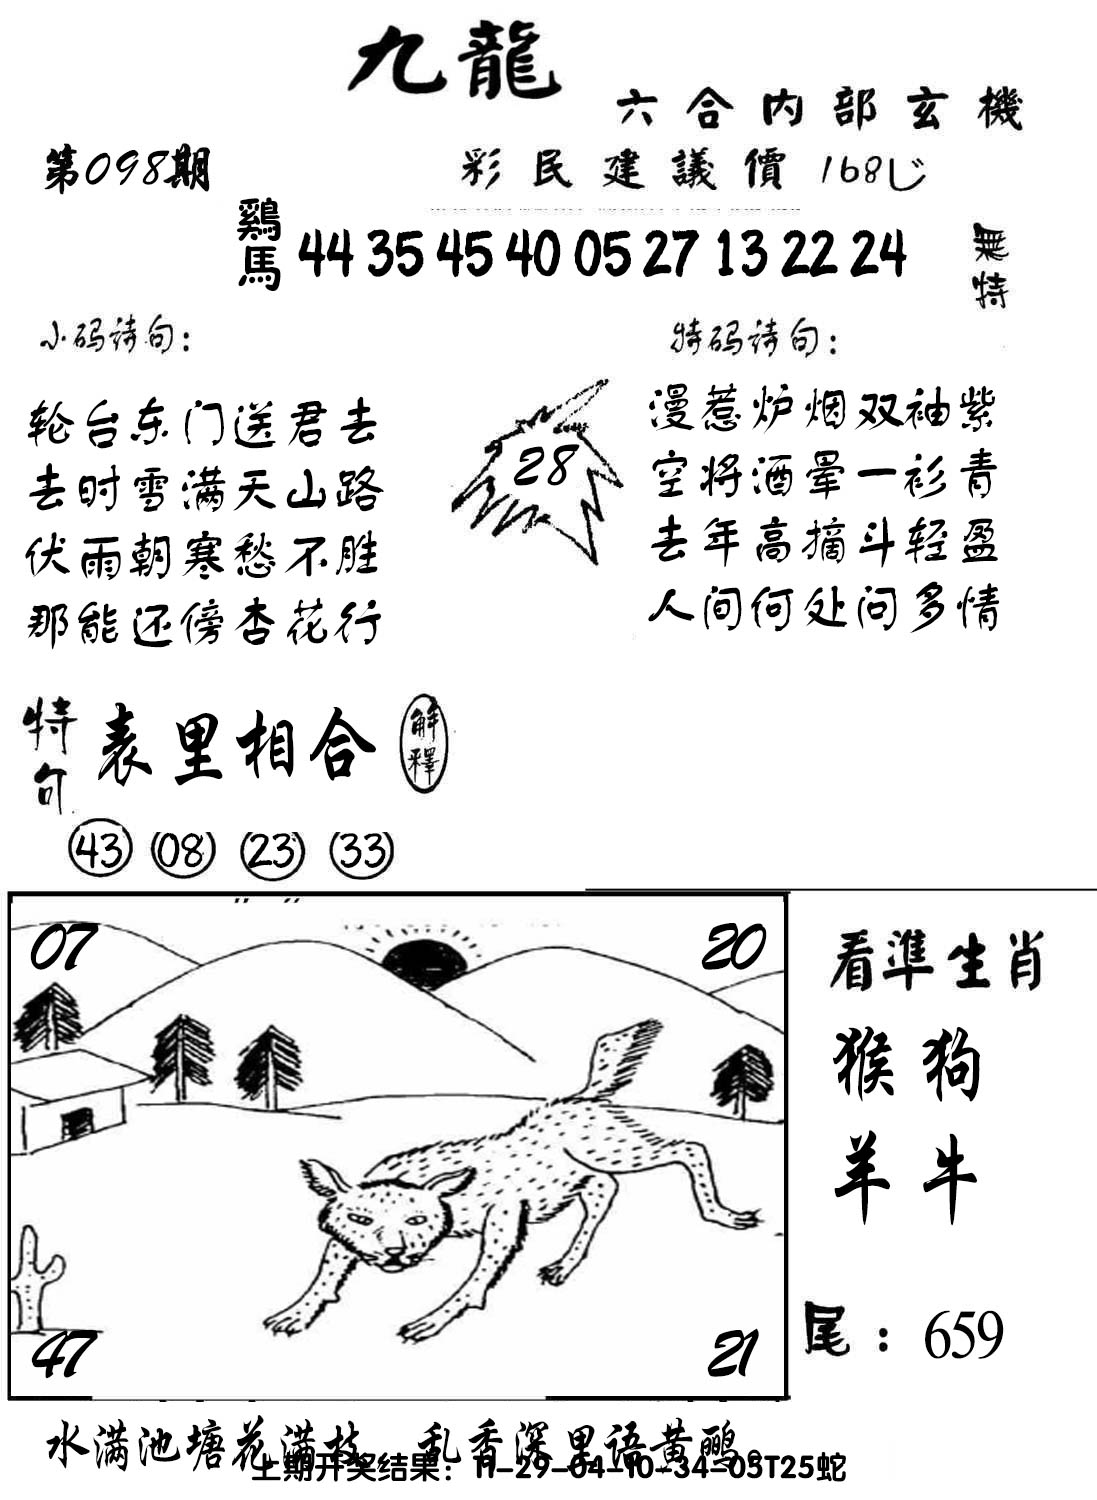 九龍
六合内部玄機
第098期
彩民建議價 168
鷄馬 44 35 45 40 05 27 13 22 24 無特
小码诗句：
轮台东门送君去
去时雪满天山路
伏雨朝寒愁不胜
那能还傍杏花行
28
特码诗句：
漫惹炉烟双袖紫
空将酒晕一衫青
去年高摘斗轻盈
人间何处问多情
特句 表里相合 解釋
43 08 23 33
07 20
47 21
看準生肖
猴狗
羊牛
尾：659
水满池塘花满枝 乱香深里语黄鹂。
上期开奖结果：11-29-04-10-34-05T25蛇